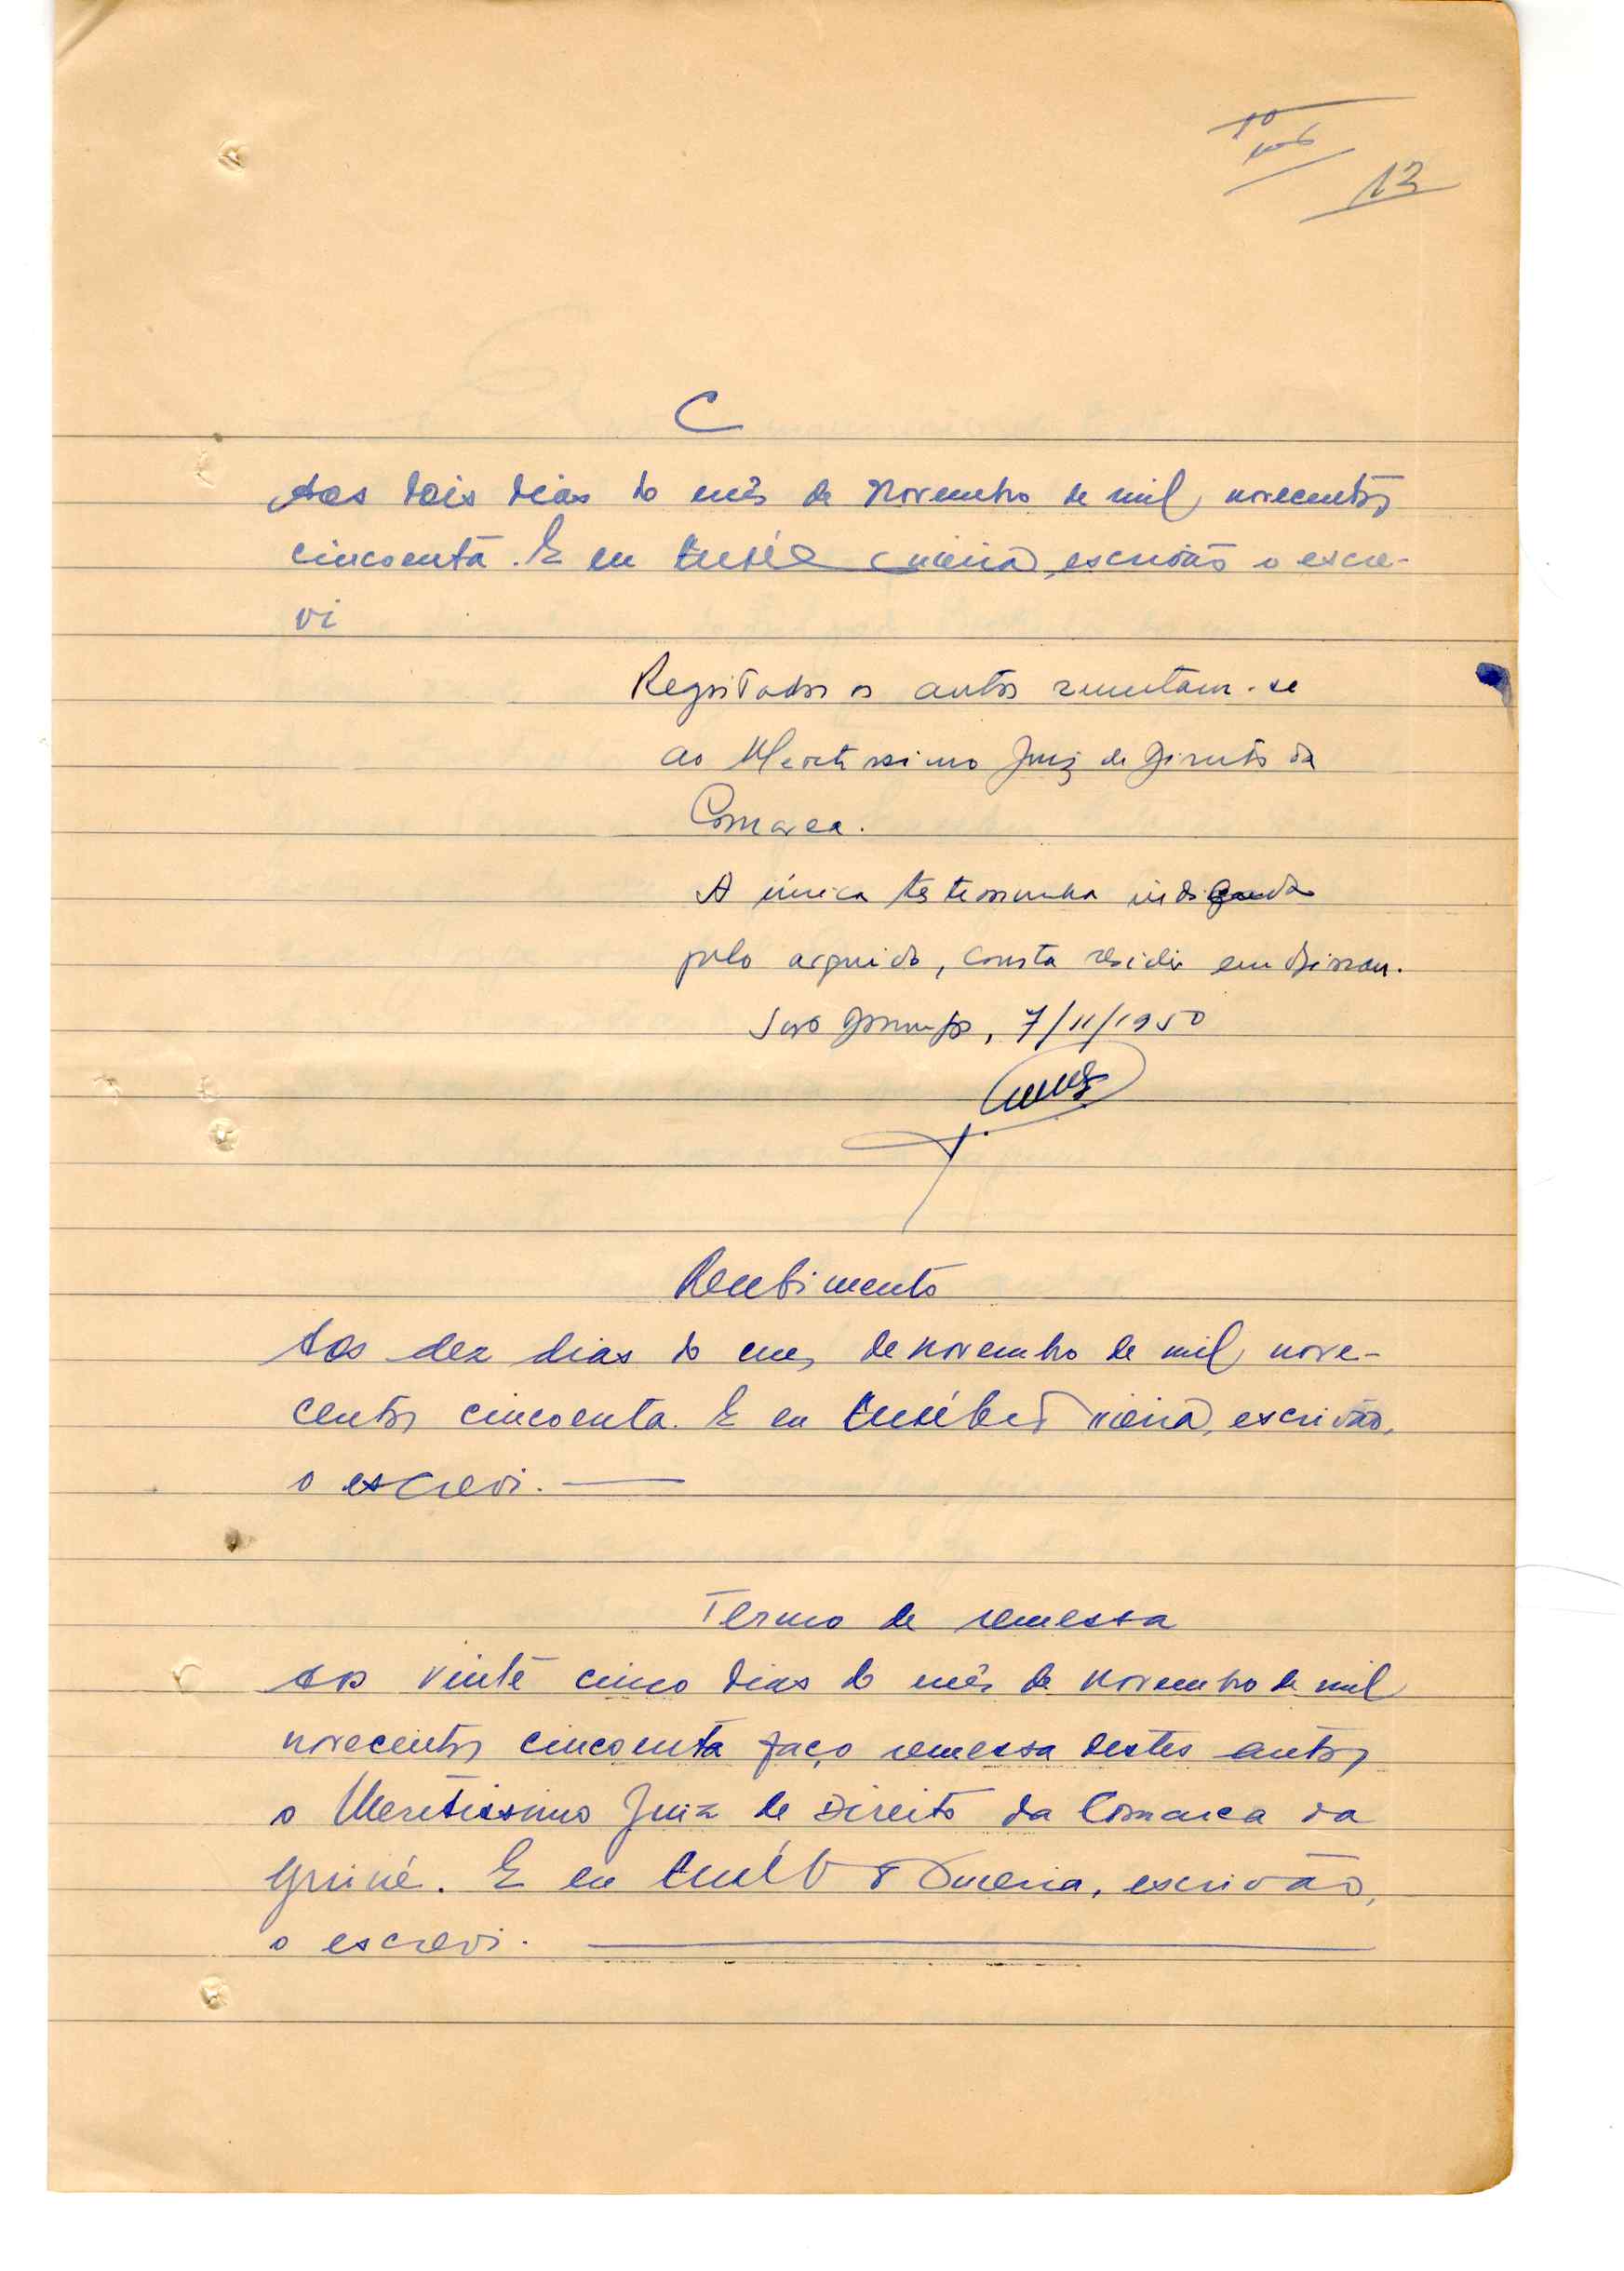 13
C
Aos dois dias do mês de Novembro de mil novecentos
cincoenta. E eu escrivão o escre-
vi
Registados os autos remetam-se
ao Meretissimo Juiz de Direito da
Comarca.
A única testemunha indicada
pelo arguido, consta residir em Bissau.
7/11/1950
Recebimento
Aos dez dias do mes de novembro de mil nove-
centos cincoenta. E eu escrivão,
o escrevi.
Termo de remessa
Aos vinte cinco dias do mês de novembro de mil
novecentos cincoenta faço remessa destes autos
o Meretissimo Juiz de Direito da Comarca da
Guiné. E eu escrivão,
o escrevi.